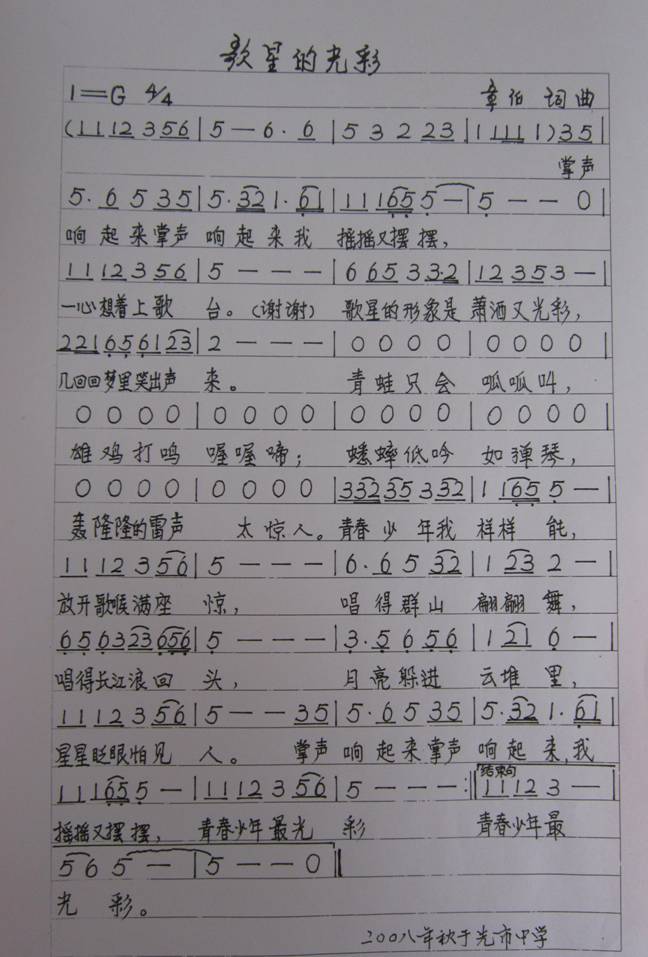 歌星的光彩
1=G 4/4 章伯 词曲
(1 1 1 2 3 5 6 | 5 — 6. 6 | 5 3 2 2 3 | 1 1 1 1 1) 3 5 |
掌声
5. 6 5 3 5 | 5. 3 2 1. 6 1 | 1 1 1 6 5 5 — | 5 — — 0 |
响起来掌声 响起来我 摇摇又摆摆,
1 1 1 2 3 5 6 | 5 — — — | 6 6 5 3 3.2 | 1 2 3 5 3 — |
一心想着上歌 台。(谢谢) 歌星的形象是 萧洒又光彩,
2 2 1 6 5 6 1 2 3 | 2 — — — | 0 0 0 0 | 0 0 0 0 |
几回回梦里笑出声 来。 青蛙只会 呱呱叫,
0 0 0 0 | 0 0 0 0 | 0 0 0 0 | 0 0 0 0 |
雄鸡打鸣 喔喔啼; 蟋蟀低吟 如弹琴,
0 0 0 0 | 0 0 0 0 | 3 3 2 3 5 3 3 2 | 1 1 6 5 5 — |
轰隆隆的雷声 太惊人。青春少年我 样样能,
1 1 1 2 3 5 6 | 5 — — — | 6. 6 5 3 2 | 1 2 3 2 — |
放开歌喉满座 惊, 唱得群山 翩翩舞,
6 5 5 6 3 2 3 6 5 6 | 5 — — — | 3. 5 6 5 6 | 1 2 1 6 — |
唱得长江浪回 头, 月亮躲进 云堆里,
1 1 1 2 3 5 6 | 5 — — 3 5 | 5. 6 5 3 5 | 5. 3 2 1. 6 1 |
星星眨眼怕见 人。 掌声 响起来掌声 响起来,我
结束句
1 1 1 6 5 5 — | 1 1 1 2 3 5 6 | 5 — — — :‖ 1 1 1 2 3 — |
摇摇又摆摆, 青春少年最光 彩 青春少年最
5 6 5 — | 5 — — 0 ‖
光彩。
二00八年秋于光市中学